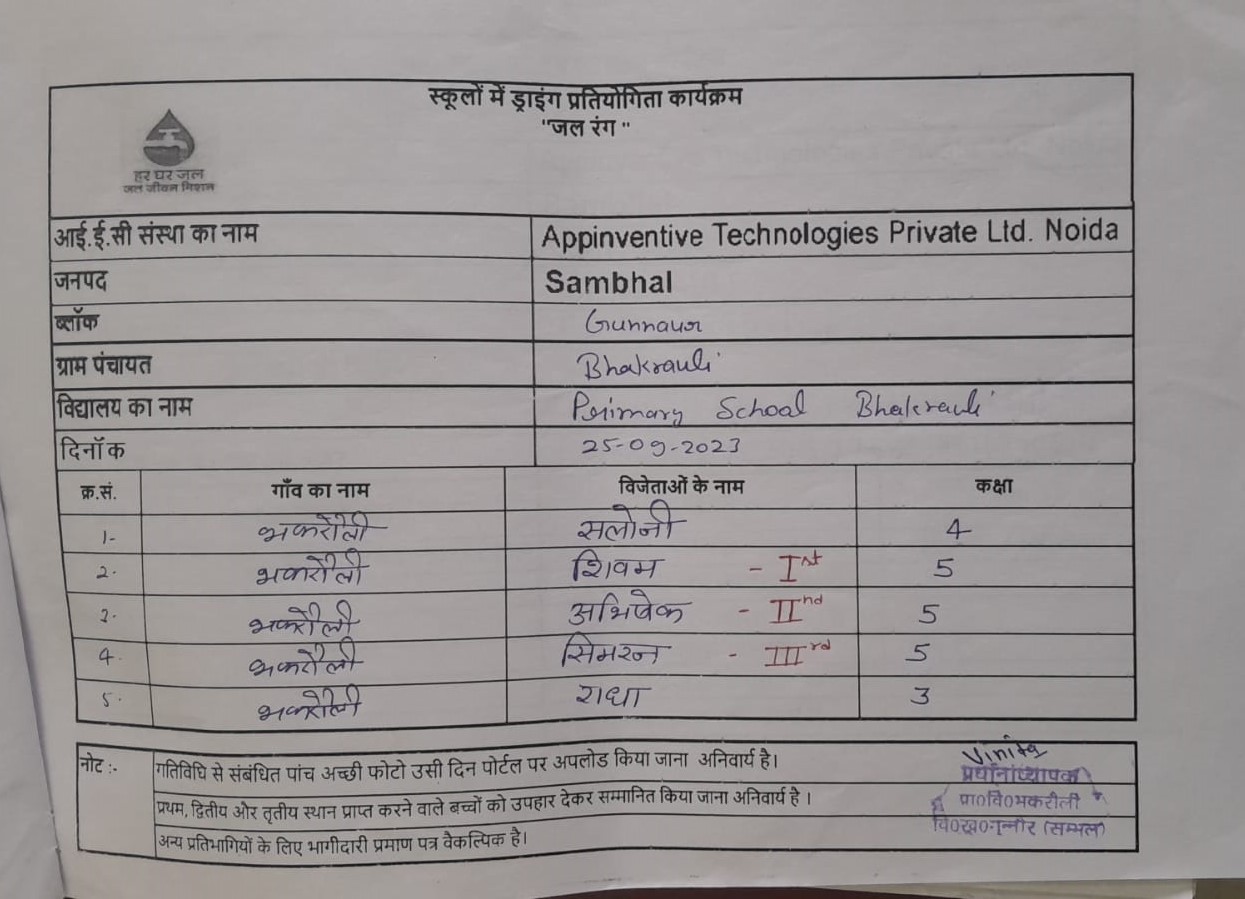 स्कूलों में ड्राइंग प्रतियोगिता कार्यक्रम
"जल रंग "
हर घर जल
जल जीवन मिशन
आई.ई.सी संस्था का नाम Appinventive Technologies Private Ltd. Noida
जनपद Sambhal
ब्लॉक Gunnaur
ग्राम पंचायत Bhakrauli
विद्यालय का नाम Primary School Bhakrauli
दिनॉक 25-09-2023
क्र.सं. गाँव का नाम विजेताओं के नाम कक्षा
1- भकरौली सलोनी 4
2- भकरौली शिवम - Ist 5
3- भकरौली अभिषेक - IInd 5
4. भकरौली सिमरन - IIIrd 5
5. भकरौली राधा 3
नोट :- गतिविधि से संबंधित पांच अच्छी फोटो उसी दिन पोर्टल पर अपलोड किया जाना अनिवार्य है।
प्रथम, द्वितीय और तृतीय स्थान प्राप्त करने वाले बच्चों को उपहार देकर सम्मानित किया जाना अनिवार्य है ।
अन्य प्रतिभागियों के लिए भागीदारी प्रमाण पत्र वैकल्पिक है।
Vinita
प्रधानाध्यापक
प्रा०वि०भकरौली
वि०ख०गुन्नौर (सम्भल)